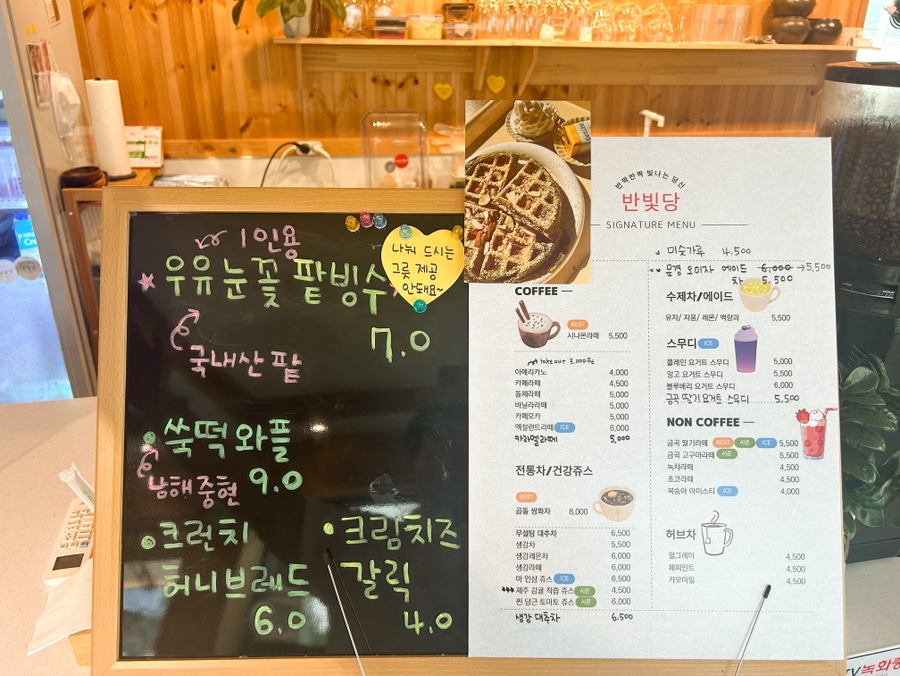 1인용
우유눈꽃 팥빙수
나눠 드시는
그릇 제공
안돼요~
7.0
국내산 팥
쑥떡 와플
남해중현 9.0
크런치
허니브레드
6.0
크림치즈
갈릭
4.0
반짝반짝 빛나는 당신
반빛당
SIGNATURE MENU
미숫가루 4.500
문경 오미자 에이드 6,000→5,500
차 5,500
COFFEE
BEST
시나몬라떼 5,500
take out 3,000원
아메리카노 4,000
카페라떼 4,500
돌체라떼 5,000
바닐라라떼 5,000
카페모카 5,000
엑설런트라떼 ICE 6,000
카라멜라떼 5,000
전통차/건강쥬스
BEST
곱돌 쌍화차 8,000
무설탕 대추차 6,500
생강차 5,500
생강레몬차 6,000
생강라떼 6,000
마 인삼 쥬스 ICE 6,500
제주 감귤 착즙 쥬스 시즌 4,500
찐 당근 토마토 쥬스 시즌 6,000
생강 대추차 6.500
수제차/에이드
유자/ 자몽/ 레몬/ 백향과 5,500
스무디 ICE
플레인 요거트 스무디 5,000
망고 요거트 스무디 5,500
블루베리 요거트 스무디 6,000
금곡 딸기 요거트 스무디 5,500
NON COFFEE
금곡 딸기라떼 BEST 시즌 ICE 5,500
금곡 고구마라떼 시즌 5,500
녹차라떼 4,500
초코라떼 4,500
복숭아 아이스티 ICE 4,000
허브차
얼그레이 4,500
페퍼민트 4,500
카모마일 4,500